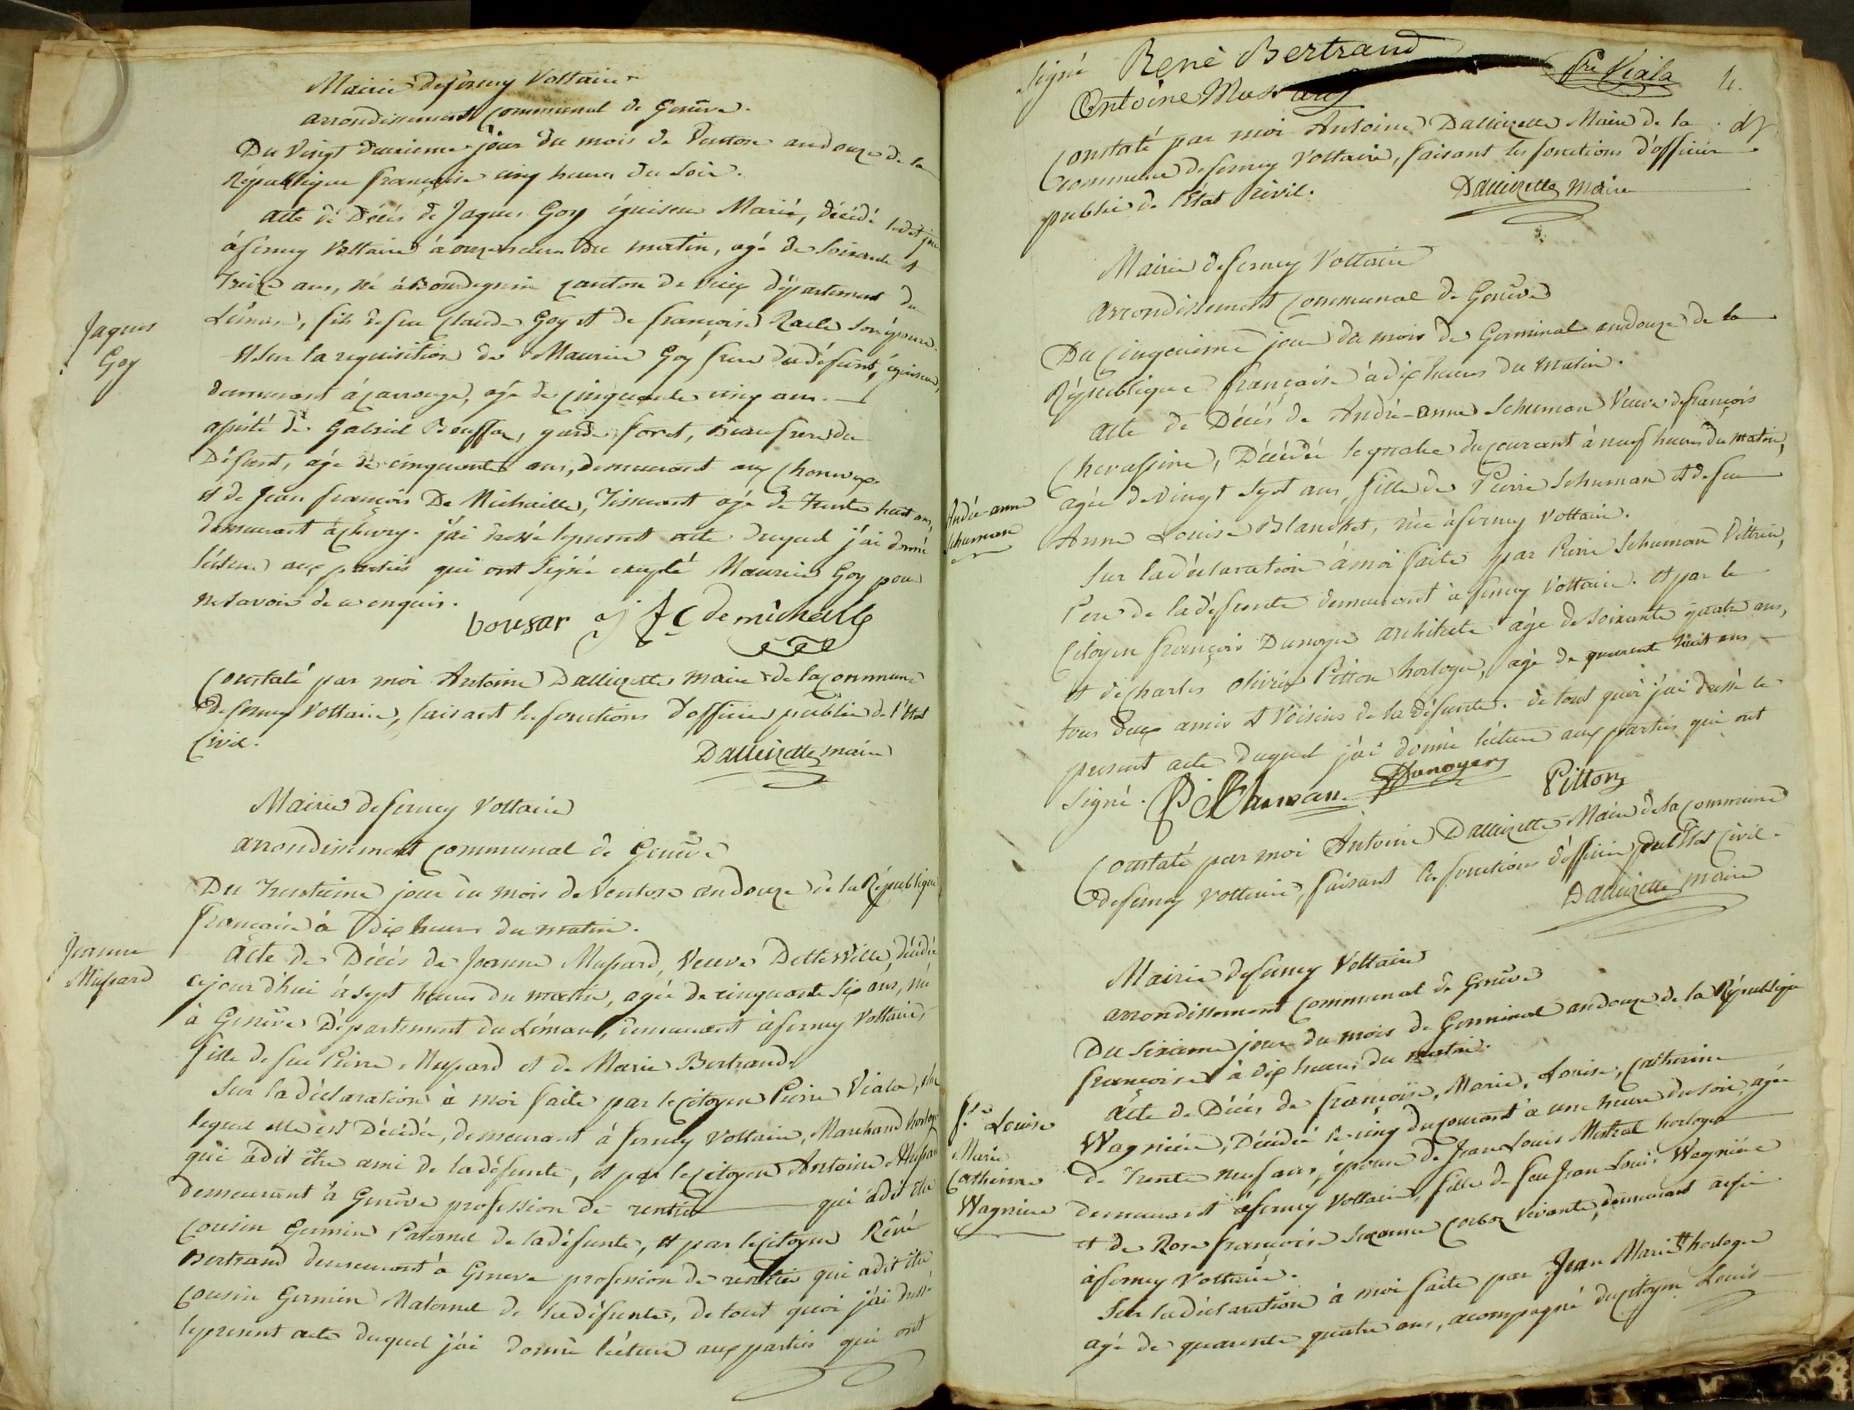 Mairie de ferney Voltaire
arrondissement Communal de Genêve.
Du Vingt deuxieme jour du mois de Ventose an douze de la
République française cinq heures du Soir.
acte de Décés de Jaques Goy épuiseur Marié, décédé ledit jour
à ferney Voltaire à onze heures du matin, agé de Soixante et
treize ans, né à Bourdegnin canton de département du
Léman, fils de feu Claude Goy et de françoise Racle Son épouse.
Jaques
Goy
Et Sur la requisition de Maurice Goy frere du défunt,
demeurant à Carrouge, agé de cinquante cinq ans.
assisté de Gabriel Boussa, garde foret, beau frere du
Défunt, agé de cinquante ans, demeurant aux
et de Jean françois De Michaille, Tisserant agé de trente huit ans,
demeurant à Chevry. j'ai dressé le present acte duquel j'ai donné
lécture aux parties qui ont Signé excepté Maurice Goy pour
ne savoir de ce enquis.
bousar j f c de michaille
Constaté par moi Antoine Dallizette maire de la Commune
de ferney Voltaire, faisant les fonctions d'officier public de l'Etat
Civil.
Dallizette maire
Mairie de ferney Voltaire
arrondissement Communal de Genêve
Du Trentieme jour du mois de Ventose an douze de la République
française à dix heures du matin.
Jeanne
Mussard
Acte de Décés de Jeanne Mussard, Veuve Detterville, décédée
cejourd'hui à sept heures du matin, agée de cinquante six ans, née
à Genêve Département du Léman, demeurant à ferney Voltaire,
fille de feu Pierre Mussard et de Marie Bertrand.
Sur la déclaration à moi faite par le Citoyen Pierre Viala, chez
lequel elle est Décédée, demeurant à ferney Voltaire, Marchand horloger
qui a dit être ami de la défunte, et par le Citoyen Antoine Mussard
demeurant à Genêve profession de rentier qui a dit être
Cousin Germain Paternel de la défunte, et par le Citoyen Réné
Bertrand demeurant à Geneve profession de rentier qui a dit être
Cousin Germain Maternel de la défunte, de tout quoi j'ai dressé
le present acte duquel j'ai donné lécture aux parties qui ont
Signé René Bertrand Pre Viala 4.
Antoine Mussard
Constaté par moi Antoine Dallizette Maire de la
Commune de ferney Voltaire, faisant les fonctions d'officier
public de l'Etat Civil. Dallizette maire
Mairie de ferney Voltaire
arrondissement Communal de Genêve
Du Cinquieme jour du mois de Germinal an douze de la
République française à dix heures du matin.
acte de Décés de André-anne Schuman Veuve de françois
Chevassine, Décédée le quatre du courant à neuf heures du matin,
André-anne
Schuman
agée de vingt sept ans, fille de Pierre Schuman et de feu
Anne Louise Blanchet, née à ferney Voltaire.
Sur la déclaration à moi faite par Pierre Schuman Vittrier,
Pere de la défunte demeurant à ferney Voltaire. et par le
Citoyen françois Dunoyer architecte agé de soixante quatre ans,
et de Charles olivier Pitton horloger, agé de quarante huit ans
tous deux amis et Voisins de la défunte. de tout quoi j'ai dressé le
present acte duquel j'ai donné lécture aux parties qui ont
Signé. P Schuman. Dunoyer Pitton
Constaté par moi Antoine Dallizette Maire de la Commune
de ferney Voltaire, faisant les fonctions d'officier de l'Etat Civil.
Dallizette maire
Mairie de ferney Voltaire
arrondissement Communal de Genêve
Du Sixieme jour du mois de Germinal an douze de la République
française à dix heures du matin.
f.se Louise
Marie
Catherine
Wagniere
Acte de Décés de françoise, Marie, Louise, Catherine
Wagniére, Décédée le cinq du courant à une heure du soir, agée
de trente neuf ans, épouse de Jean Louis Mistral horloger
demeurant à ferney Voltaire, fille de feu Jean Louis Wagniére
et de Rose françoise Suzanne Corboz vivante, demeurant aussi
à ferney Voltaire.
Sur la déclaration à moi faite par Jean Mariett horloger
agé de quarente quatre ans, acompagné du citoyen Louis